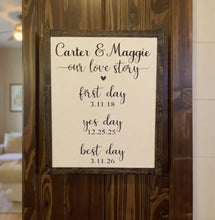 Carter & Maggie
our love story
first day
3.11.18
yes day
12.25.25
best day
3.11.26